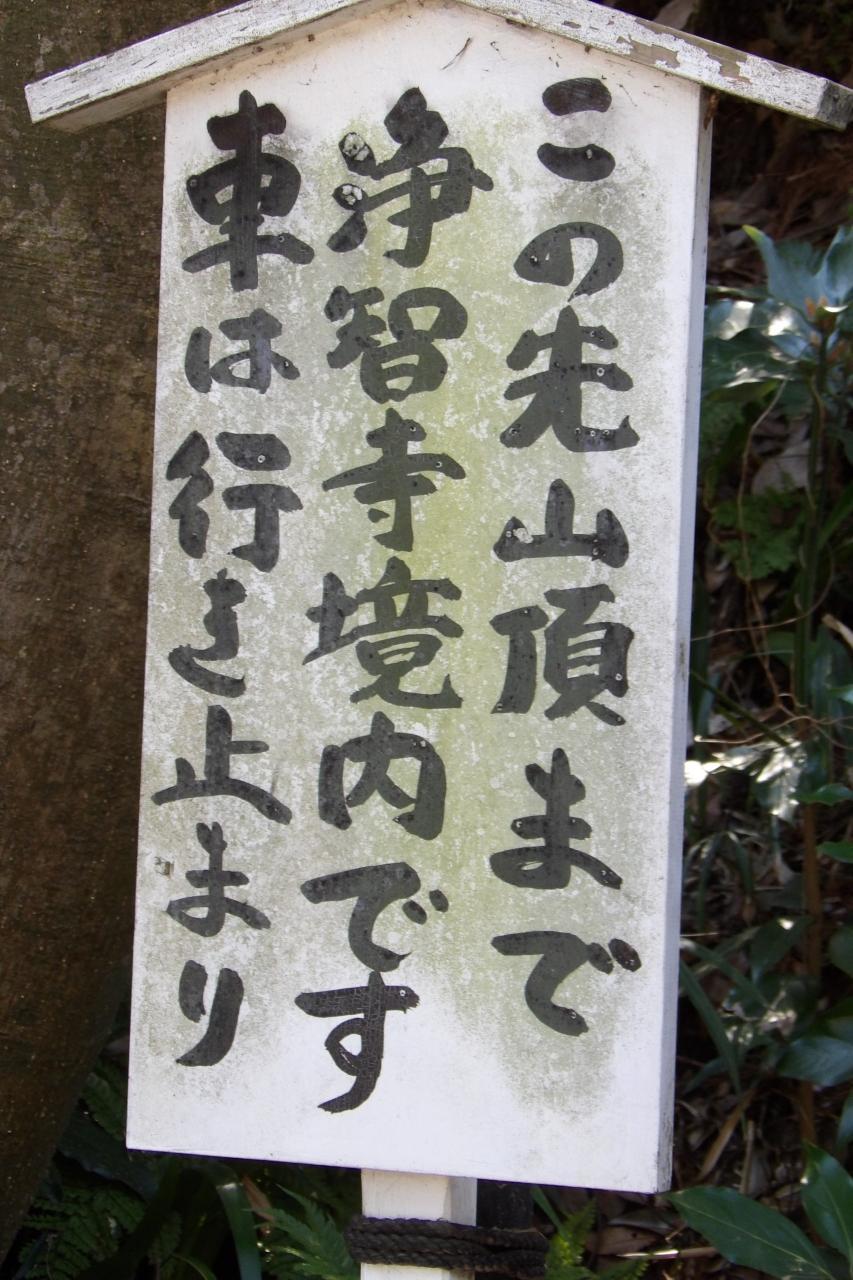 この先山頂まで
浄智寺境内です
車は行き止まり